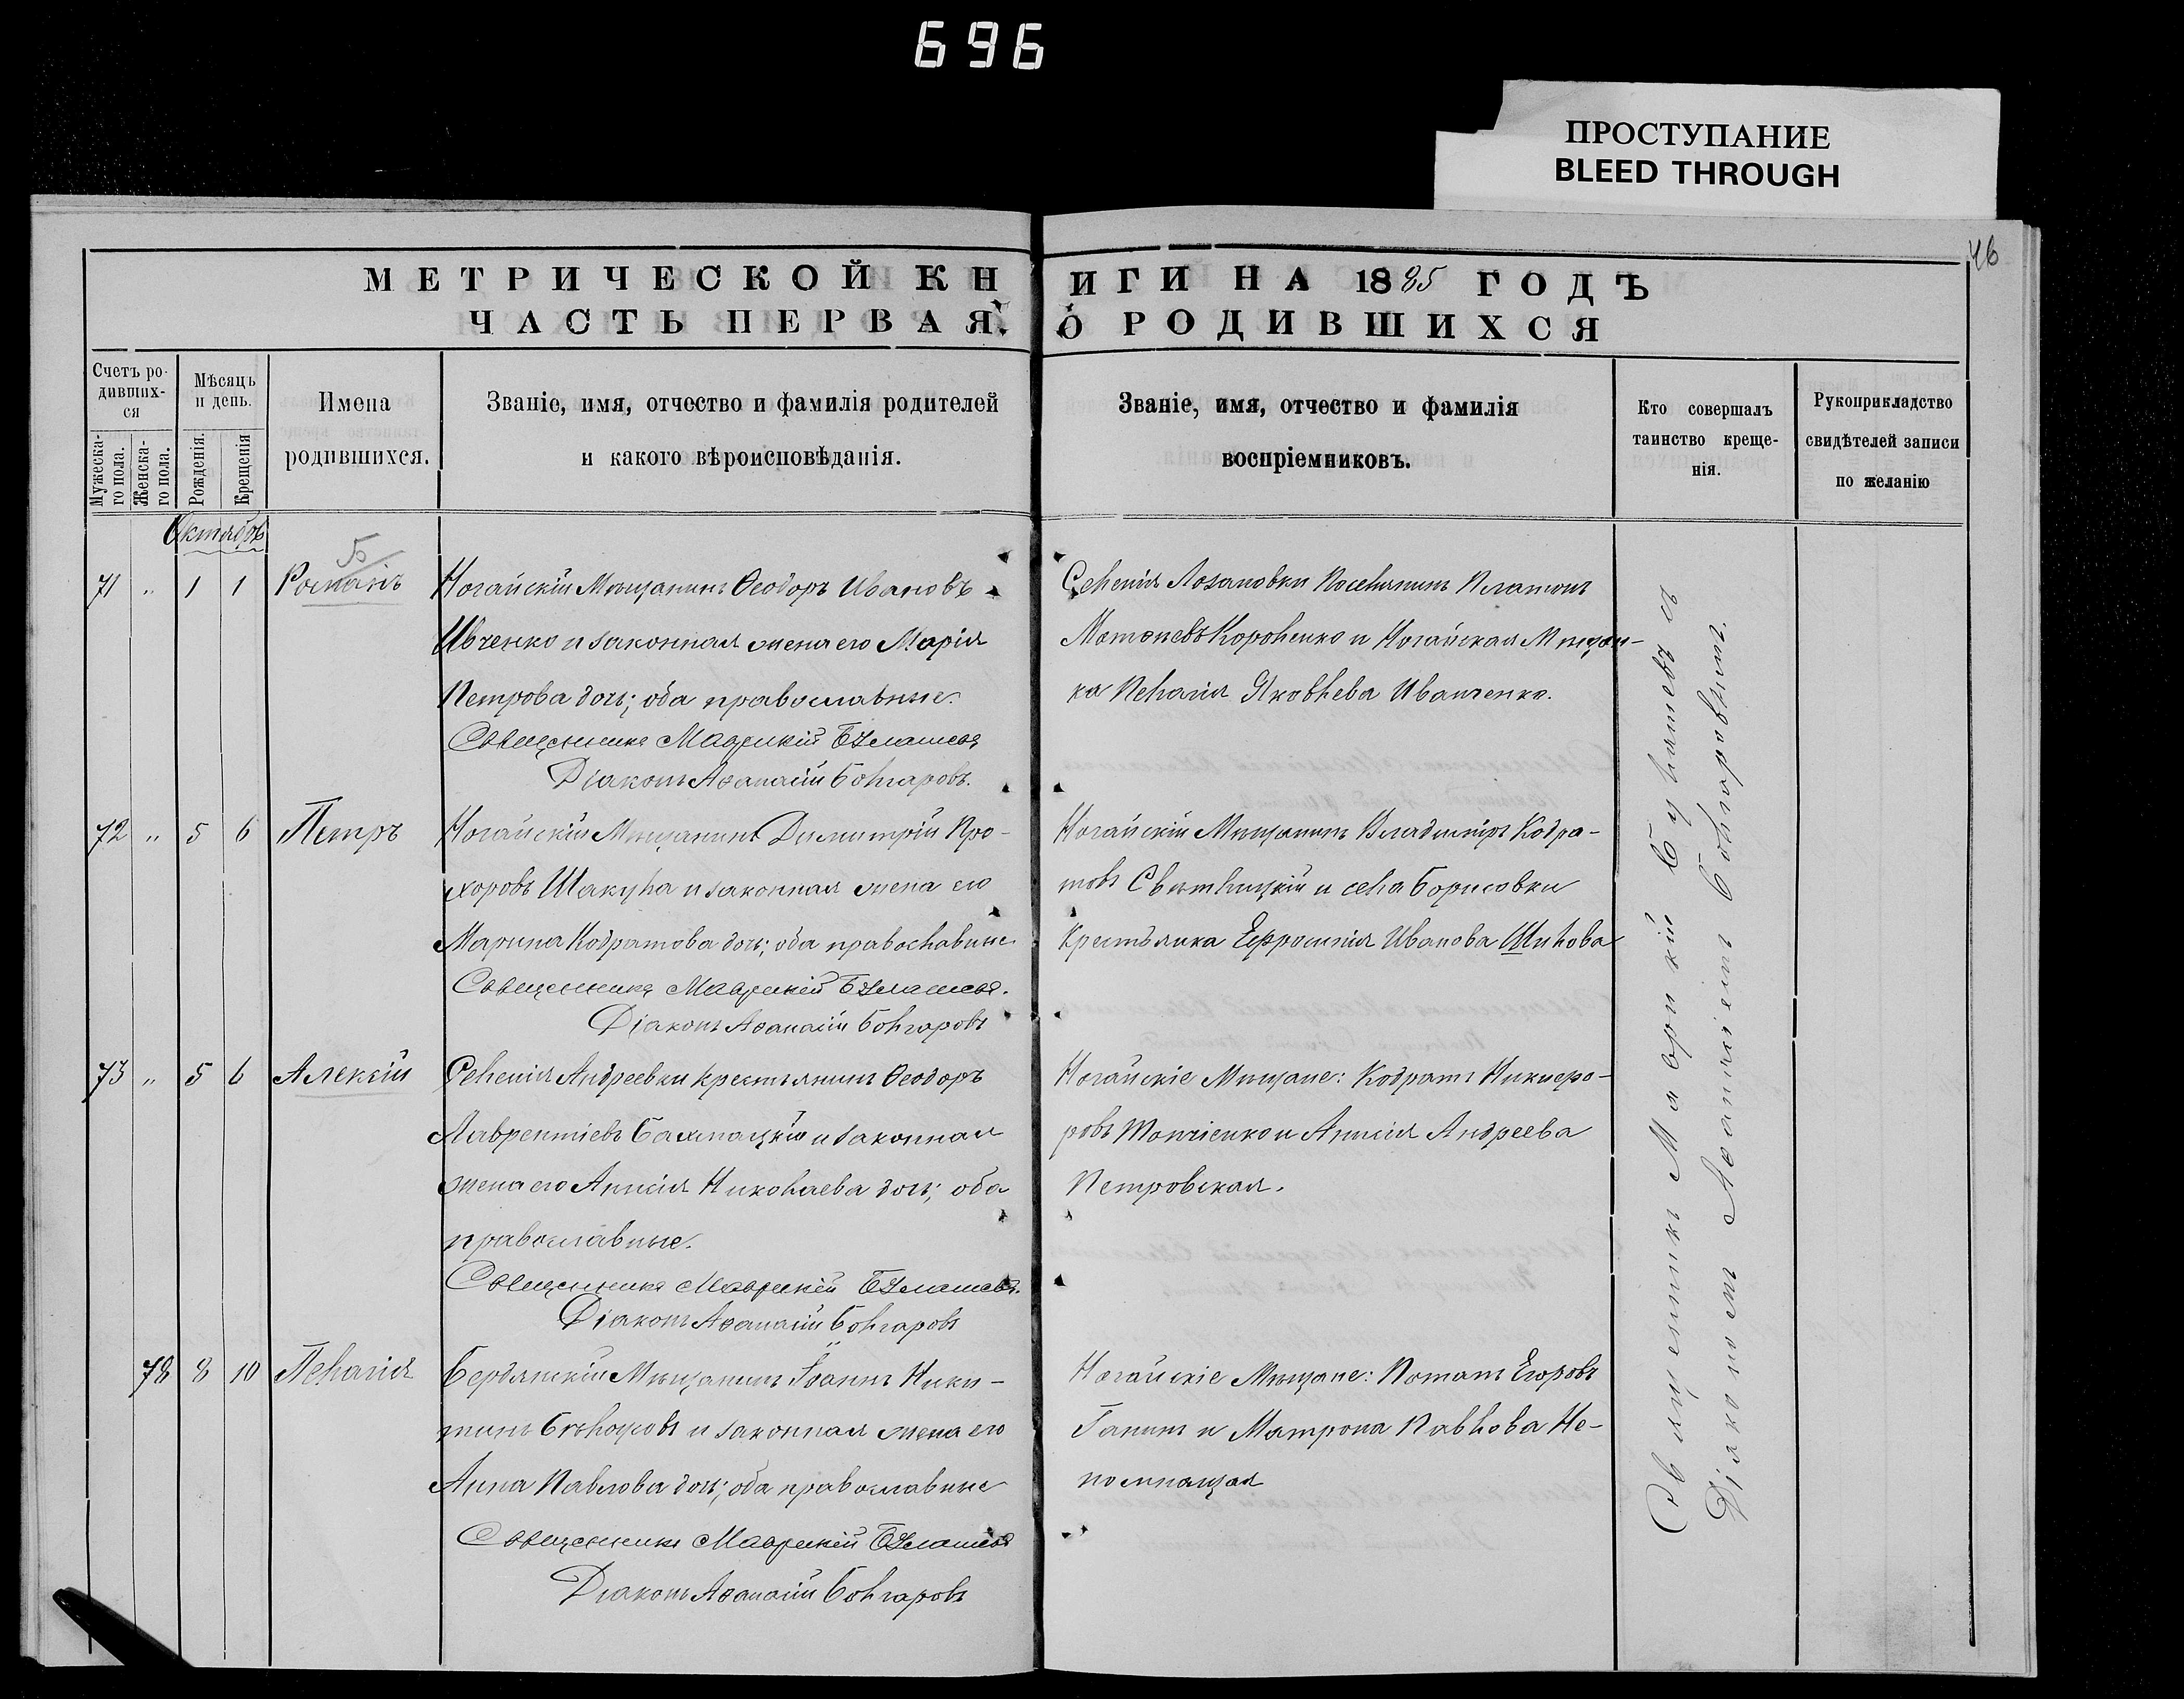 696
ПРОСТУПАНИЕ
BLEED THROUGH
46
МЕТРИЧЕСКОЙ КНИГИ НА 1885 ГОДЪ
ЧАСТЬ ПЕРВАЯ, О РОДИВШИХСЯ
Счетъ родившихся
Мужеска-го пола.
Женска-го пола.
Мѣсяцъ и день.
Рожденія.
Крещенія
Имена родившихся.
Званіе, имя, отчество и фамилія родителей
и какого вѣроисповѣданія.
Званіе, имя, отчество и фамилія
воспріемниковъ.
Кто совершалъ
таинство креще-
нія.
Рукоприкладство
свидѣтелей записи
по желанію
Октябрь
71 " 1 1 Романъ
Ногайскій Мѣщанинъ Ѳеодоръ Ивановъ
Ивченко и законная жена его Марія
Петрова дочь; оба православные.
Священникъ Маврикій
Діаконъ Аѳанасій Болгаровъ.
Селенія Лозановки Поселянинъ Платонъ
Короленко и Ногайская Мѣщан-
ка Пелагія Яковлева Иванченко.
72 " 5 6 Петръ
Ногайскій Мѣщанинъ Димитрій Про-
хоровъ Шакула и законная жена его
Марина Кодратова дочь; оба православные
Священникъ Маврикій
Діаконъ Аѳанасій Болгаровъ
Ногайскій Мѣщанинъ Владиміръ Кодра-
товъ Свѣтлицкій и села Борисовки
Крестьянка Ефросинія Иванова Шилова
73 " 5 6 Алексій
Селенія Андреевки крестьянинъ Ѳеодоръ
Лаврентіевъ и законная
жена его Анисія Николаева дочь; оба
православные.
Священникъ Маврикій
Діаконъ Аѳанасій Болгаровъ
Ногайскіе Мѣщане: Кодратъ Никифо-
ровъ и Анисія Андреева
Петровская.
78 8 10 Пелагія
Бердянскій Мѣщанинъ Іоаннъ Ники-
тинъ и законная жена его
Анна Павлова дочь; оба православные
Священникъ Маврикій
Діаконъ Аѳанасій Болгаровъ
Ногайскіе Мѣщане: Потапъ Егоровъ
Ганинъ и Матрона Павлова Не-
помнящая
Священникъ Маврикій Булашевъ съ
Діакономъ Аѳанасіемъ Болгаровымъ.